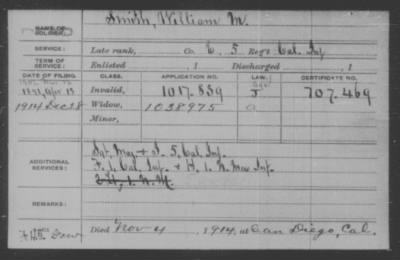 Smith, William M.
NAME OF SOLDIER:
SERVICE: Late rank, Co. E, 5 Reg't Cal. Inf.
TERM OF SERVICE: Enlisted , 1 Discharged , 1
DATE OF FILING. CLASS. APPLICATION NO. LAW. CERTIFICATE NO.
Invalid, 1017.839 707.469
1914 Dec 8 Widow, 1038975 a
Minor,
ADDITIONAL SERVICES: Sgt. Maj. + I. 5, Cal. Inf.
F. 1, Cal. Inf. + H. 1, N. Mex. Inf.
REMARKS:
Died Nov 4, 1914, at San Diego, Cal.